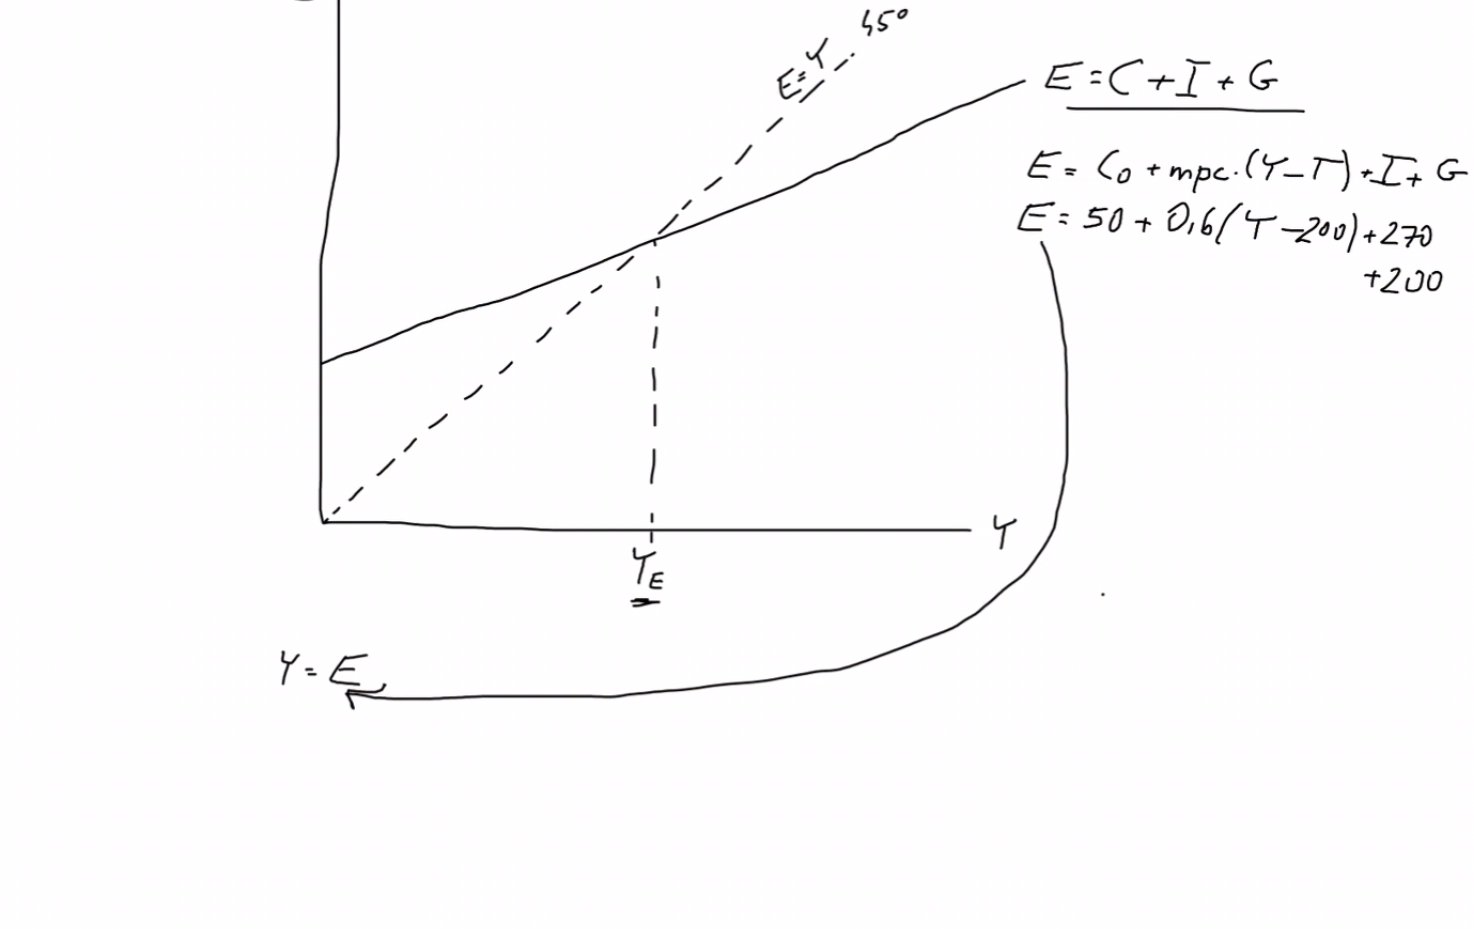 45°
E=Y
E = C + I + G
E = C₀ + mpc·(Y-T) + I + G
E = 50 + 0,6(Y-200) + 270
+200
Y
Y_E
Y = E